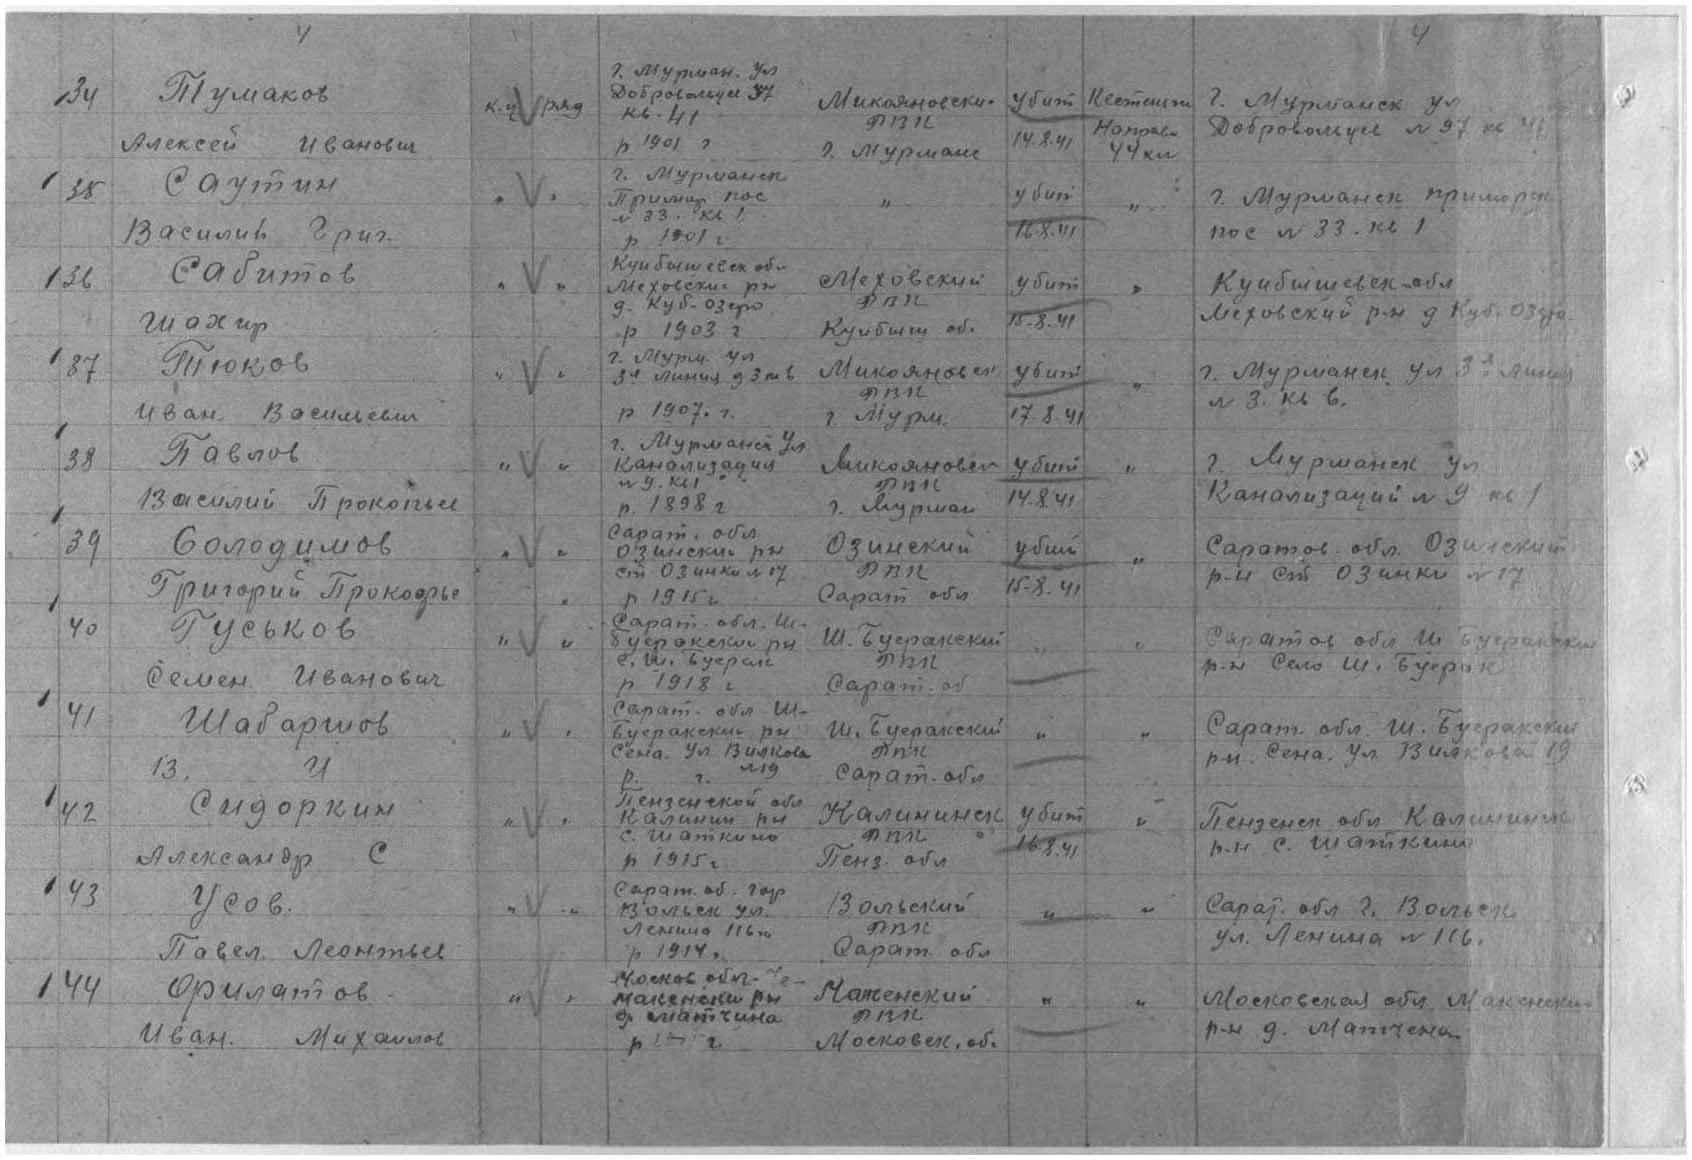 4 4
34 Тумаков к-ц ряд г. Мурман. ул Добровольцев 37 кв. 41 р 1901 г Микояновски. РВК г. Мурманс убит 14.8.41 Кестеньги Направ. 44 км г. Мурманск ул
Алексей Иванович Добровольцев № 97 кв 41
35 Саутин " " г. Мурманск Примор пос № 33. кв 1 р 1901 г " убит 16.8.41 " г. Мурманск приморск
Василий Григ. пос № 33. кв 1
36 Сабитов " " Куибышевск обл Меховский рн д. Куб-озеро р 1903 г Меховский РВК Куибыш об. убит 15.8.41 " Куибышевск-обл
Шахир Меховский р-н д Куб. Озера
37 Тюков " " г. Мурм. ул 3я линия д 3 кв р 1907. г. Микояновск РВК г Мурм. убит 17.8.41 " г. Мурманск ул 3я линия
Иван. Васильевич № 3. кв 6.
38 Павлов " " г. Мурманск ул Канализация № 9. кв 1 р. 1898 г Микояновск РВК г. Мурман убит 14.8.41 " г. Мурманск ул
Василий Прокопьев Канализаций № 9 кв 1
39 Солодимов " " Сарат. обл Озински рн ст Озинки № 17 р 1915 г Озинский РВК Сарат обл убит 15.8.41 " Саратов. обл. Озинский
Григорий Прокофье " р-н ст Озинки № 17
40 Гуськов " " Сарат. обл. Ш- Буеракский рн С. Ш. Буерак р 1918 г Ш. Буеракский РВК Сарат. об " " Саратов обл Ш Буеракский
Семен Иванович р-н Село Ш. Буерак
41 Шабаршов " " Сарат. обл Ш- Буеракский рн Сена. ул. Вилкова № 19 р. г. Ш. Буеракский РВК Сарат. обл " " Сарат. обл. Ш. Буеракский
В. И р-н. Сена. ул Вилкова 19
42 Сидоркин " " Пензенской обл Калинин рн С. Шаткино р 1915 г Калининск РВК Пенз. обл убит 16.8.41 " Пензенск обл Калининск
Александр С р-н с. Шаткино
43 Усов. " " Сарат. об. гор Вольск ул. Ленина 116 р 1914. Вольский РВК Сарат. обл " " Сарат. обл г. Вольск
Павел. Леонтьев ул. Ленина № 116.
44 Филатов " " Москов обл- Макенски рн д. Матчина р г. Маженский РВК Московск. об. " " Московская обл Макенский
Иван. Михаилов р-н д. Матчена